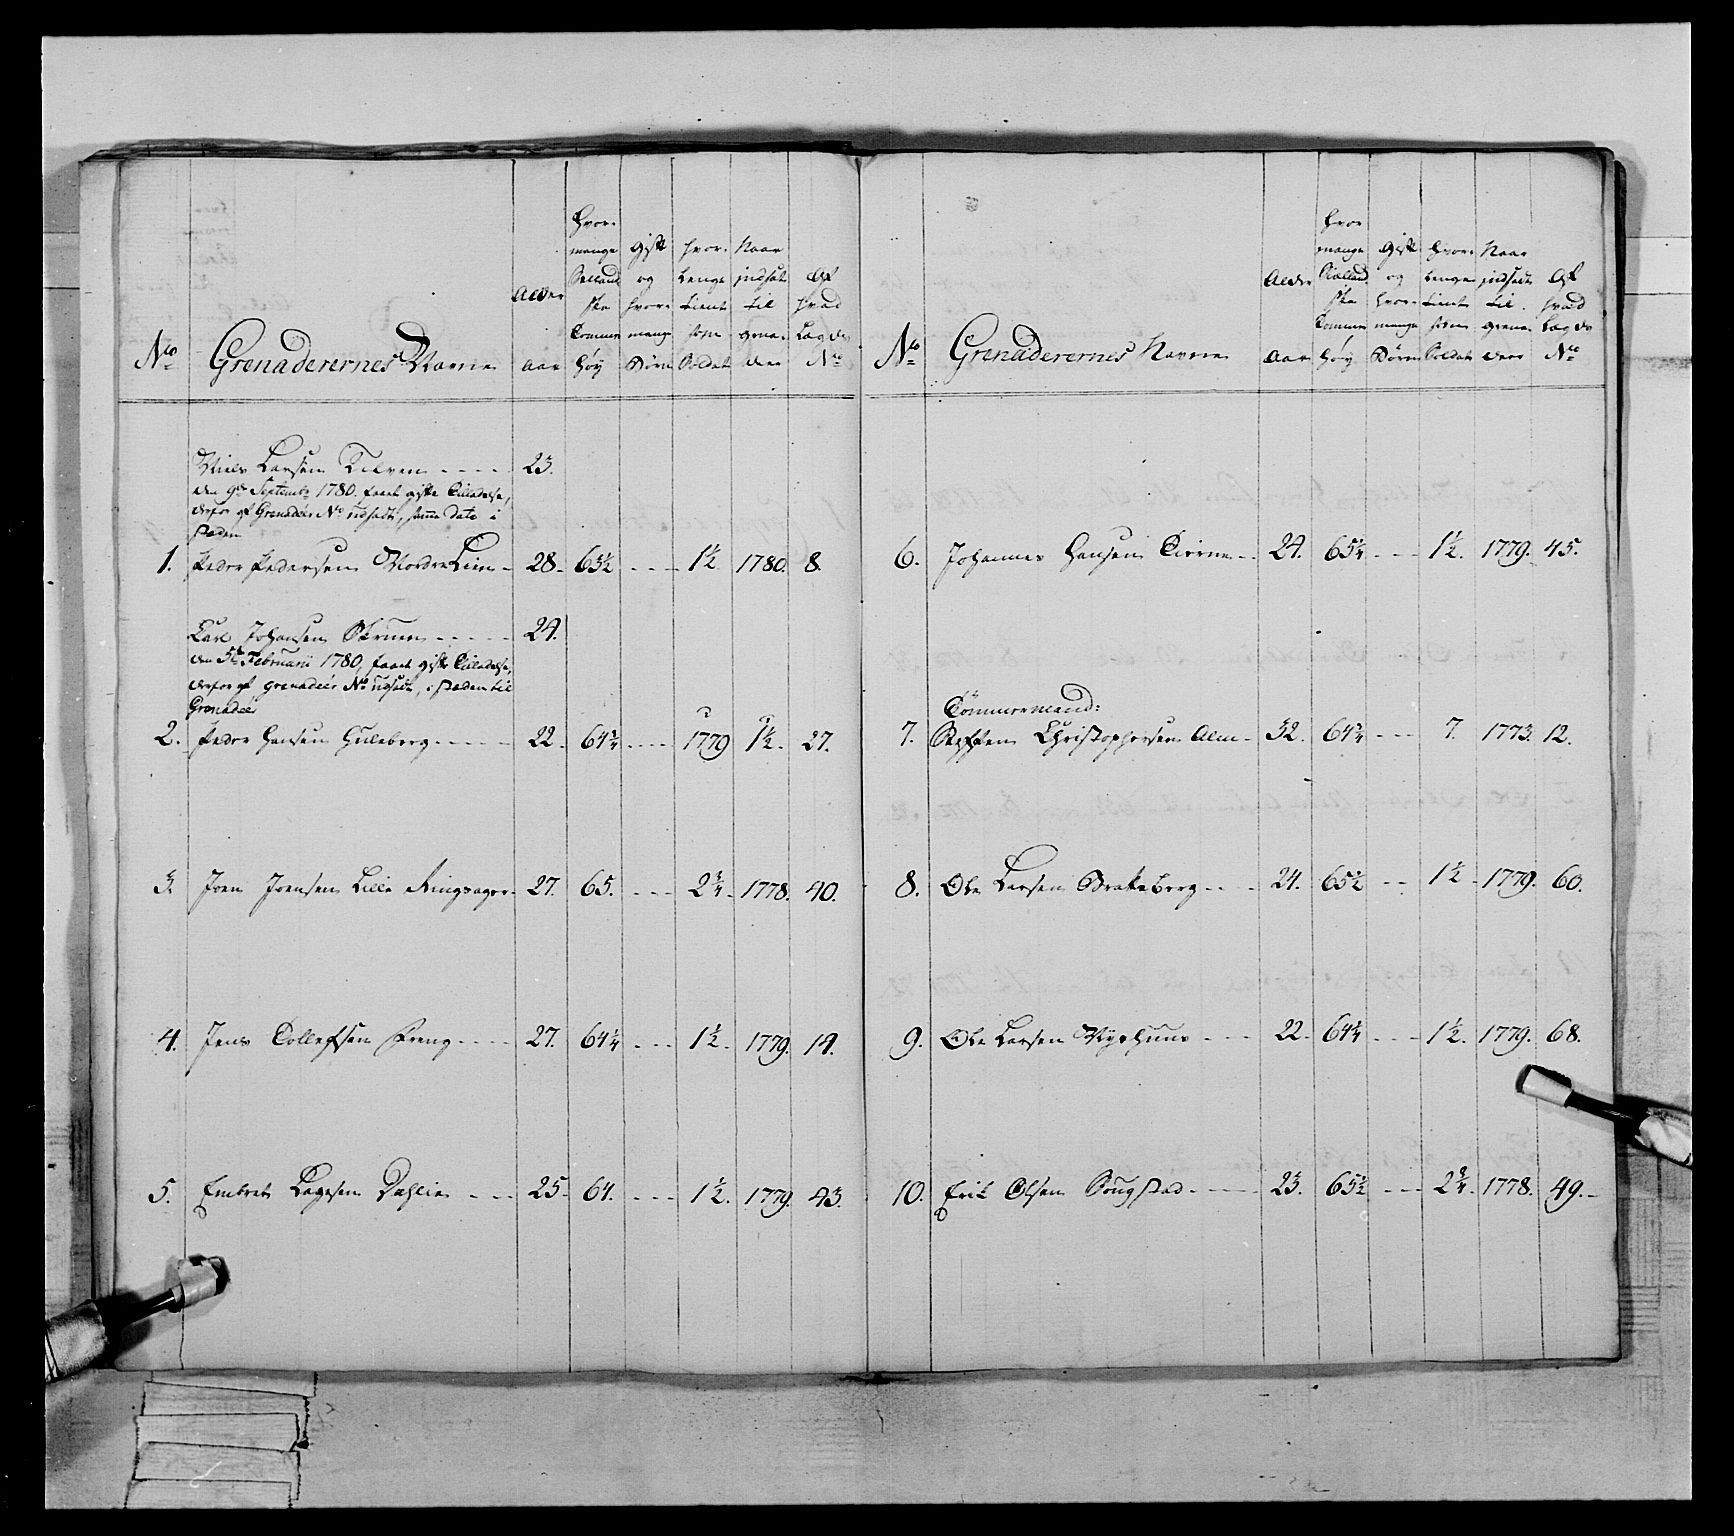 No Grenaderernes Navne
Alder
aar
Hvor
mange
Siælland
ske
Tommer
Høy
Gift
og
hvor
mange
Børn
hvor
Lenge
tient
som
Soldat
Naar
indsat
til
Grena
deer
Af
hvad
Lægds
No
Niels Larsen - - - - 23.
den 9de Septembr 1780. faaet gifte Tilladelse,
derfor af Grenadeer No udsadt, samme dato i
Steden
1. Peder Pedersen NordreLien - 28. 63½ - - - 1½ 1780. 8.
Lars Johansen - - - - 24.
den 5te Februarii 1780, faaet gifte Tilladelse,
derfor af grenadeer No udsadt, i Steden til
Grenadeer
2. Peder Hansen Huleberg - - - - 22. 64¾ - - - 1779 1½. 27.
3. Joen Joensen Lille Ringsager - 27. 65. - - - 2¾. 1778. 40.
4. Jens Tollefsen Freng - - - - 27. 64¼ - - - 1½. 1779. 14.
5. Embret Dahlie - - - 25. 64. - - - 1½. 1779. 43.
No Grenaderernes Navne
Alder
aar
Hvor
mange
Siælland
ske
Tommer
Høy
Gift
og
hvor
mange
Børn
Hvor
Lenge
tient
som
Soldat
Naar
indsadt
til
Grena
deer
Af
hvad
Lægds
No
6. Johannes Hansen - - 24. 65¼ - - - 1½. 1779. 45.
Tømmermand:
7. Steffen Christophersen Alm - 32. 64¾ - - - 7. 1773. 12.
8. Ole Larsen Brakeberg - - - 24. 65½ - - 1½ - 1779. 60.
9. Ole Larsen Nyehuus - - - 22. 64¼ - - - 1½. 1779. 68.
10. Erik Olsen Sougstad - - - - 23. 65½ - - - 2¾. 1778. 49.